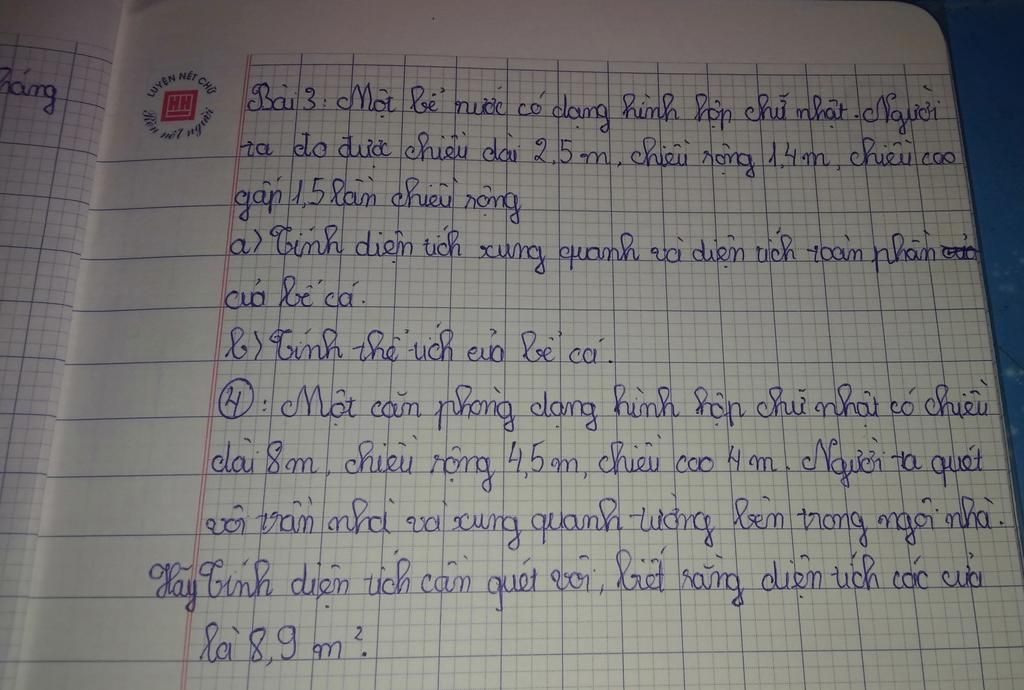 háng
LUYỆN NÉT CHỮ
HH
Rèn nết người
Bài 3: Một bể nước có dạng hình hộp chữ nhật. Người
ta đo được chiều dài 2,5 m, chiều rộng 1,4 m, chiều cao
gấp 1,5 lần chiều rộng
a) Tính diện tích xung quanh và diện tích toàn phần
của bể cá.
b) Tính thể tích của bể cá.
4: Một căn phòng dạng hình hộp chữ nhật có chiều
dài 8m, chiều rộng 4,5m, chiều cao 4m. Người ta quét
vôi trần nhà và xung quanh tường bên trong ngôi nhà.
Hãy Tính diện tích cần quét vôi, biết rằng diện tích các cửa
là 8,9 m².